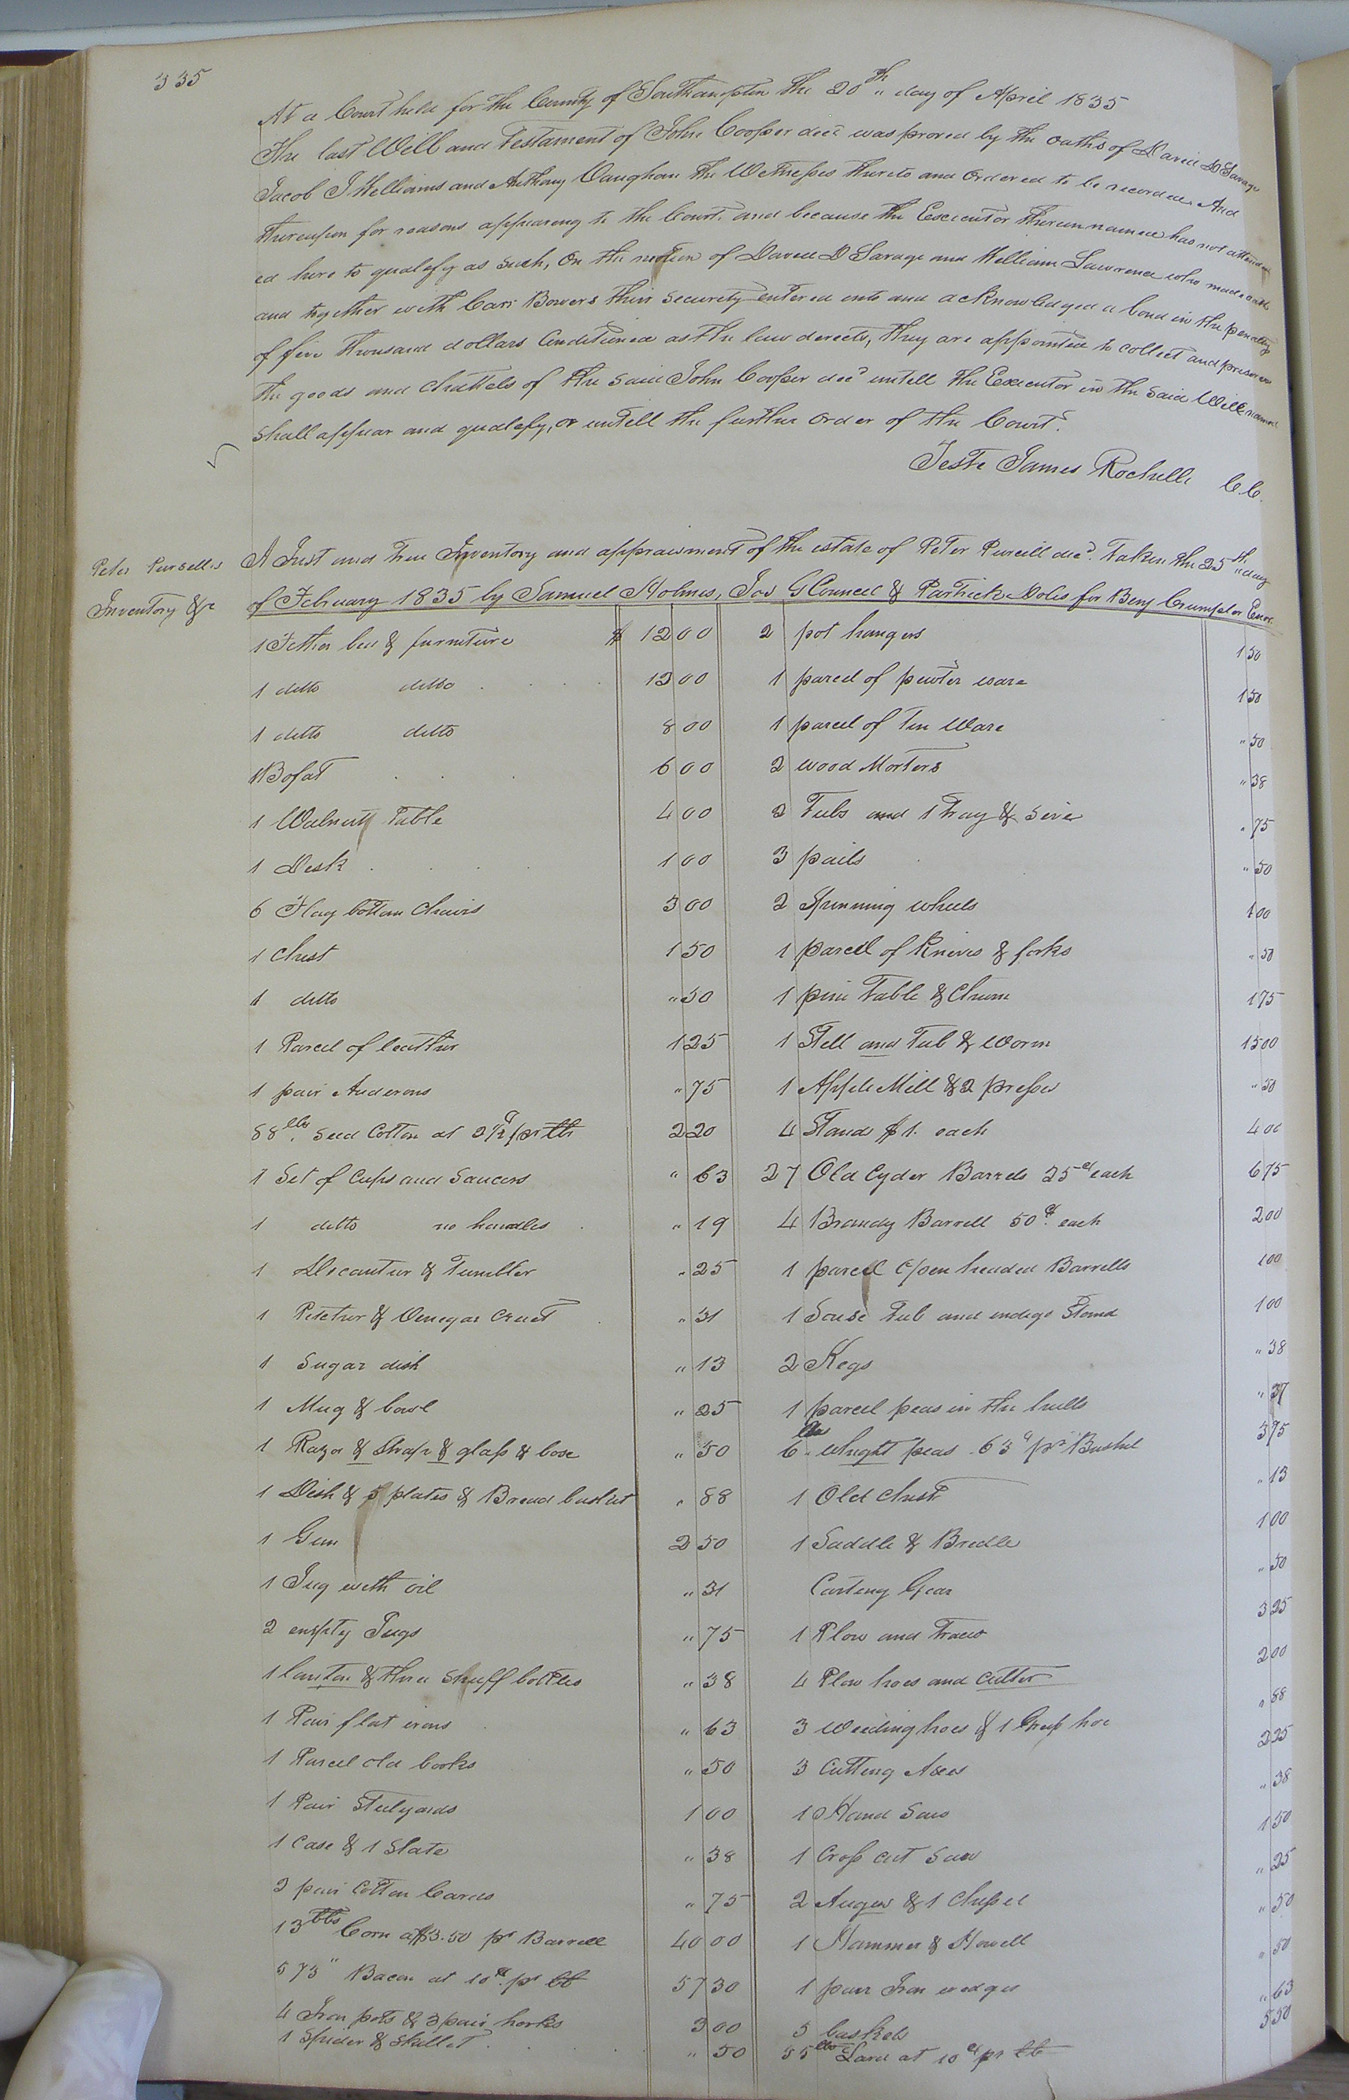 335
At a Court held for the County of Southampton the 20th day of April 1835
The last Will and Testament of John Cooper decd was proved by the oaths of David D Savage
Jacob J Williams and Anthony Vaughan the Witnesses thereto and Ordered to be recorded And
thereupon for reasons appearing to the Court and because the Executor therein named has not attend
ed here to qualify as such, On the motion of David D Savage and William Lawrence who made oath
and together with Carr Bowers their security entered into and acknowledged a bond in the penalty
of five thousand dollars Conditioned as the law directs, they are appointed to collect and preserve
the goods and chattels of the said John Cooper decd untill the Executor in the said Will named
shall appear and qualify, or untill the further order of the Court.
Teste James Rochelle C.C.
Peter Pursells
Inventory &c
A Just and true Inventory and appraisment of the estate of Peter Purcill decd. Taken the 25th day
of February 1835 by Samuel Holmes, Jas G Councel & Partrick Doles for Benj Crumpler Exor
1 Fether bed & furniture $ 12 00
1 ditto ditto 12 00
1 ditto ditto 8 00
1 Bofat 6 00
1 Walnutt Table 4 00
1 Desk 1 00
6 Flag bottom Chairs 3 00
1 Chest 1 50
1 ditto " 50
1 Parcel of leather 1 25
1 pair Anderons " 75
88 lbs Seed Cotton at 2 1/2 c pr lb 2 20
1 Set of Cups and Saucers " 63
1 ditto no handles " 19
1 Decantur & Tumbler " 25
1 Pitcher & Venegar Cruet " 31
1 Sugar dish " 13
1 Mug & bowl " 25
1 Razor & Strap & glass & box " 50
1 Dish & 5 plates & Bread basket " 88
1 Gun 2 50
1 Jug with oil " 31
2 empty Jugs " 75
1 Canton & three snuff bottles " 38
1 Pair flat irons " 63
1 Parcel old books " 50
1 Pair Stelyards 1 00
1 Case & 1 Slate " 38
2 pair Cotton Cards " 75
13 bbs Corn at $3.50 pr Barrell 40 00
573 " Bacon at 10 c pr lb 57 30
4 Iron pots & 3 pair hooks 3 00
1 Spider & Skillet " 50
2 pot hangers 1 50
1 parcel of pewter ware 1 50
1 parcel of Tin Ware " 50
2 wood Morters " 38
2 Tubs and 1 tray & sive " 75
3 pails " 50
2 Spinning wheels 1 00
1 parcel of Knives & forks " 50
1 pine Table & Churn 1 75
1 Still and Tub & Worm 15 00
1 Apple Mill & 2 presses " 50
4 Stands $1. each 4 00
27 Old Cyder Barrels 25 c each 6 75
4 Brandy Barrell 50 c each 2 00
1 parcel open headed Barrells 1 00
1 Souse Tub and indego Stand 1 00
2 Kegs " 38
1 parcel peas in the hulls " 37
6 bbs whight peas 63 c pr Bushel 3 75
1 Old Chest " 13
1 Saddle & Bredle 1 00
Carting Gear " 50
1 Plow and Traces 3 25
4 Plow hoes and cutter 2 00
3 weeding hoes & 1 Grass hoe " 88
3 Cutting Axes 2 25
1 Hand Saw " 38
1 Cross cut Saw 1 50
2 Augers & 1 Chissel " 25
1 Hammer & Howell " 50
1 pair Iron wedges " 50
5 baskets " 63
55 lbs Lard at 10 c pr lb 5 50